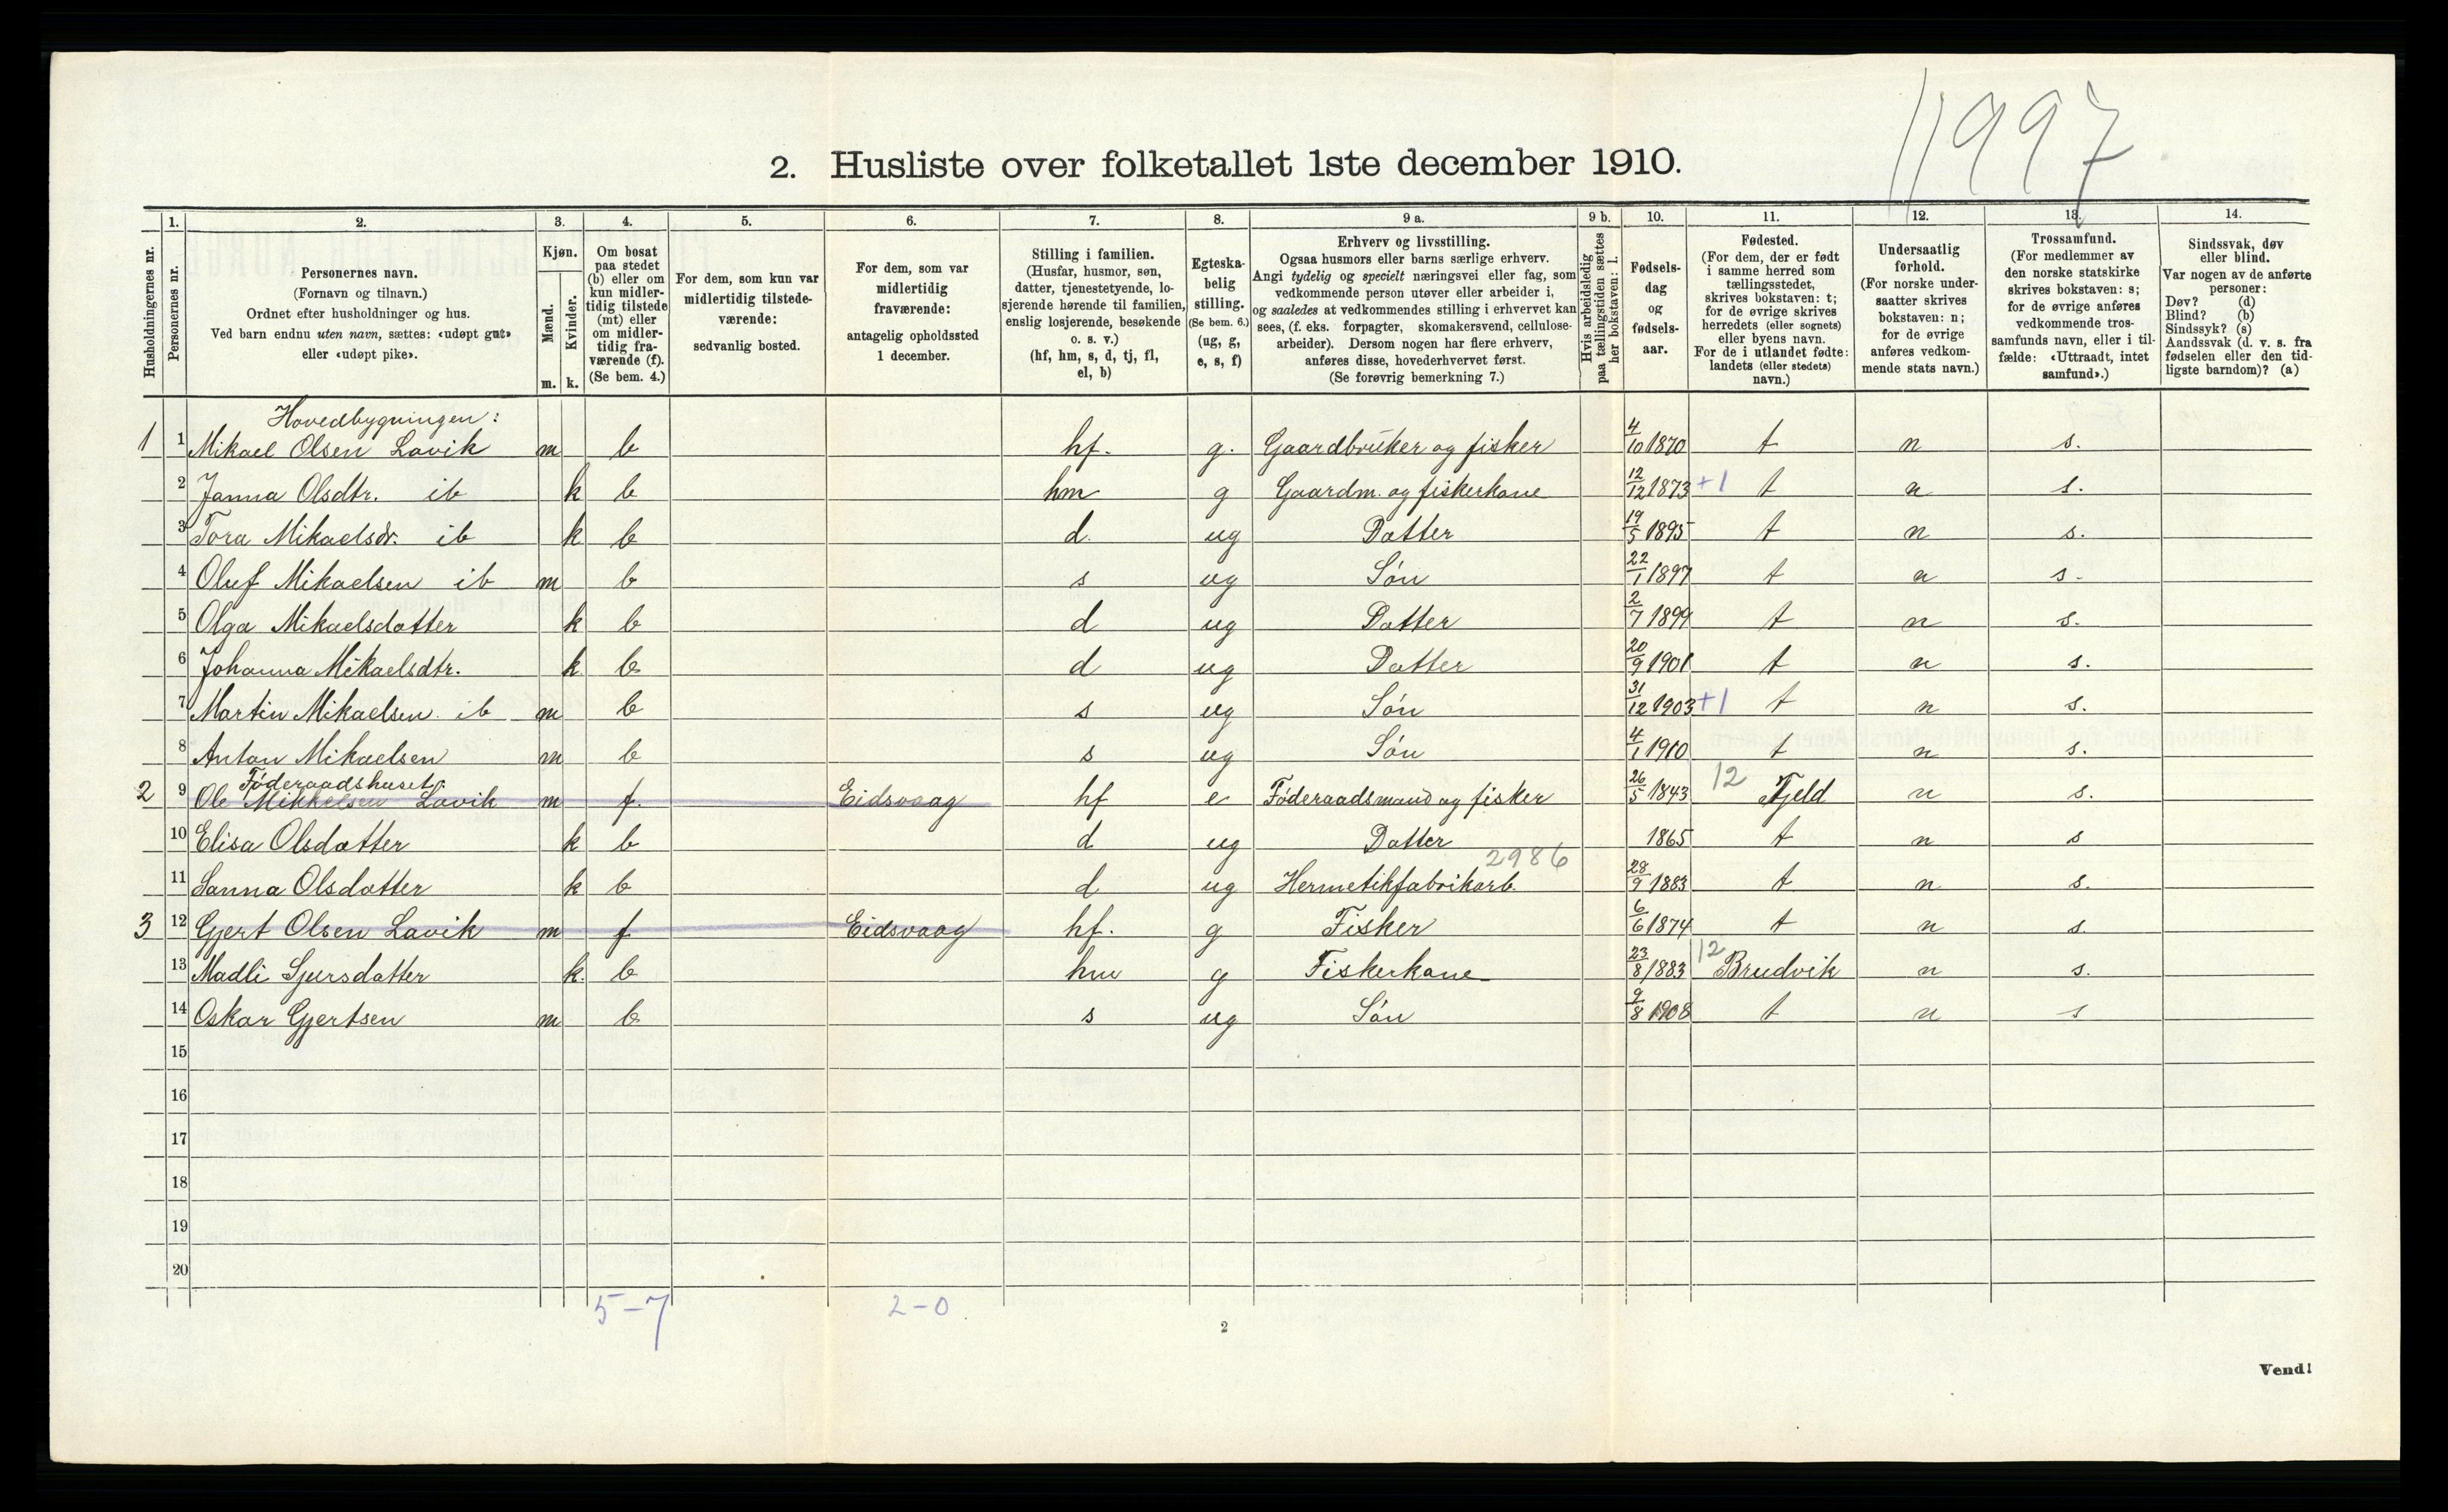 11997
2. Husliste over folketallet 1ste december 1910.
Husholdningernes nr.
1. Personernes nr.
2. Personernes navn. (Fornavn og tilnavn.) Ordnet efter husholdninger og hus. Ved barn endnu uten navn, sættes: «udøpt gut» eller «udøpt pike».
3. Kjøn. Mænd. m. Kvinder. k.
4. Om bosat paa stedet (b) eller om kun midlertidig tilstede (mt) eller om midlertidig fraværende (f). (Se bem. 4.)
5. For dem, som kun var midlertidig tilstedeværende: sedvanlig bosted.
6. For dem, som var midlertidig fraværende: antagelig opholdssted 1 december.
7. Stilling i familien. (Husfar, husmor, søn, datter, tjenestetyende, losjerende hørende til familien, enslig losjerende, besøkende o. s. v.) (hf, hm, s, d, tj, fl, el, b)
8. Egteskabelig stilling. (Se bem. 6.) (ug, g, e, s, f)
9 a. Erhverv og livsstilling. Ogsaa husmors eller barns særlige erhverv. Angi tydelig og specielt næringsvei eller fag, som vedkommende person utøver eller arbeider i, og saaledes at vedkommendes stilling i erhvervet kan sees, (f. eks. forpagter, skomakersvend, cellulosearbeider). Dersom nogen har flere erhverv, anføres disse, hovederhvervet først. (Se forøvrig bemerkning 7.)
9 b. Hvis arbeidsledig paa tællingstiden sættes her bokstaven: l.
10. Fødselsdag og fødselsaar.
11. Fødested. (For dem, der er født i samme herred som tællingsstedet, skrives bokstaven: t; for de øvrige skrives herredets (eller sognets) eller byens navn. For de i utlandet fødte: landets (eller stedets) navn.)
12. Undersaatlig forhold. (For norske undersaatter skrives bokstaven: n; for de øvrige anføres vedkommende stats navn.)
13. Trossamfund. (For medlemmer av den norske statskirke skrives bokstaven: s; for de øvrige anføres vedkommende trossamfunds navn, eller i tilfælde: «Uttraadt, intet samfund».)
14. Sindssvak, døv eller blind. Var nogen av de anførte personer: Døv? (d) Blind? (b) Sindssyk? (s) Aandssvak (d. v. s. fra fødselen eller den tidligste barndom)? (a)
Hovedbygningen:
1 1 Mikael Olsen Lavik m b hf. g. Gaardbruker og fisker 4/10 1870 t n s.
2 Janna Olsdtr. ib k b hm g Gaardm. og fiskerkone 12/12 1873 +1 t n s.
3 Tora Mikaelsdr. ib k b d. ug Datter 19/5 1895 t n s.
4 Oluf Mikaelsen ib m b s ug Søn 22/1 1897 t n s.
5 Olga Mikaelsdatter k b d ug Datter 2/7 1899 t n s.
6 Johanna Mikaelsdtr. k b d ug Datter 20/9 1901 t n s.
7 Martin Mikaelsen ib m b s ug Søn 31/12 1903 +1 t n s.
8 Anton Mikaelsen m b s ug Søn 4/1 1910 t n s.
Føderaadshuset:
2 9 Ole Mikkelsen Lavik m f. Eidsvaag hf e Føderaadsmand og fisker 26/5 1843 12 Fjeld n s.
10 Elisa Olsdatter k b d ug Datter 1865 t n s
2986
11 Sanna Olsdatter k b d ug Hermetikfabrikarb. 28/9 1883 t n s.
3 12 Gjert Olsen Lavik m f Eidsvaag hf. g Fisker 6/6 1874 t n s.
13 Madli Sjursdatter k. b hm g Fiskerkone 23/8 1883 12 Brudvik n s.
14 Oskar Gjertsen m b s ug Søn 9/8 1908 t n s
15
16
17
18
19
20
5-7 2-0
2
Vend!